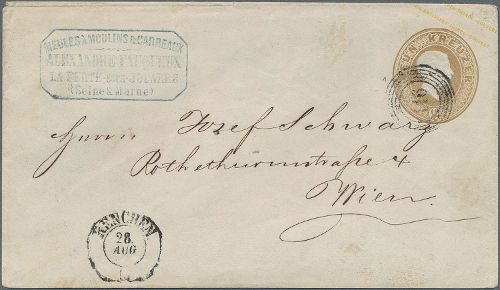 MEULES À MOULINS & CARREAUX
ALEXANDRE FAUQUEUX
LA FERTÉ-sous-JOUARRE
(Seine & Marne)
NEUN KREUZER
Herrn Josef Schwarz
Rothethurmstraße 4
Wien.
RENCHEN
28
AUG